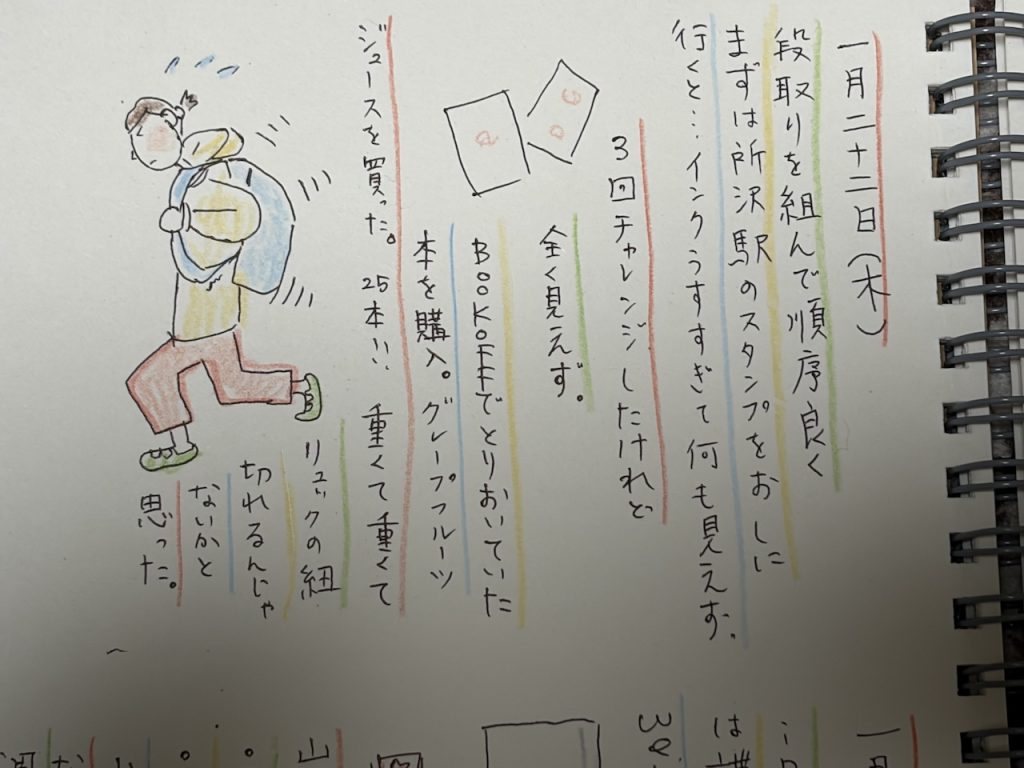 一月二十二日(木)
段取りを組んで順序良く
まずは所沢駅のスタンプをおしに
行くと…インクうすすぎて何も見えず。
3回チャレンジしたけれど
全く見えず。
BOOKOFFでとりおいていた
本を購入。グレープフルーツ
ジュースを買った。25本!! 重くて重くて
リュックの紐
切れるんじゃ
ないかと
思った。
一月
は
We
山